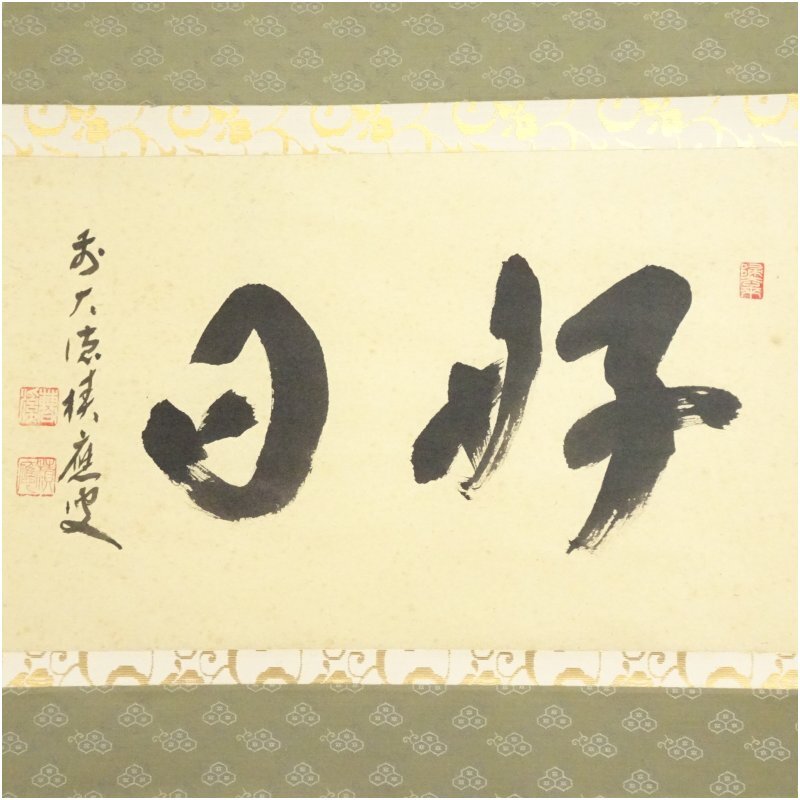 好日
前大徳積應叟